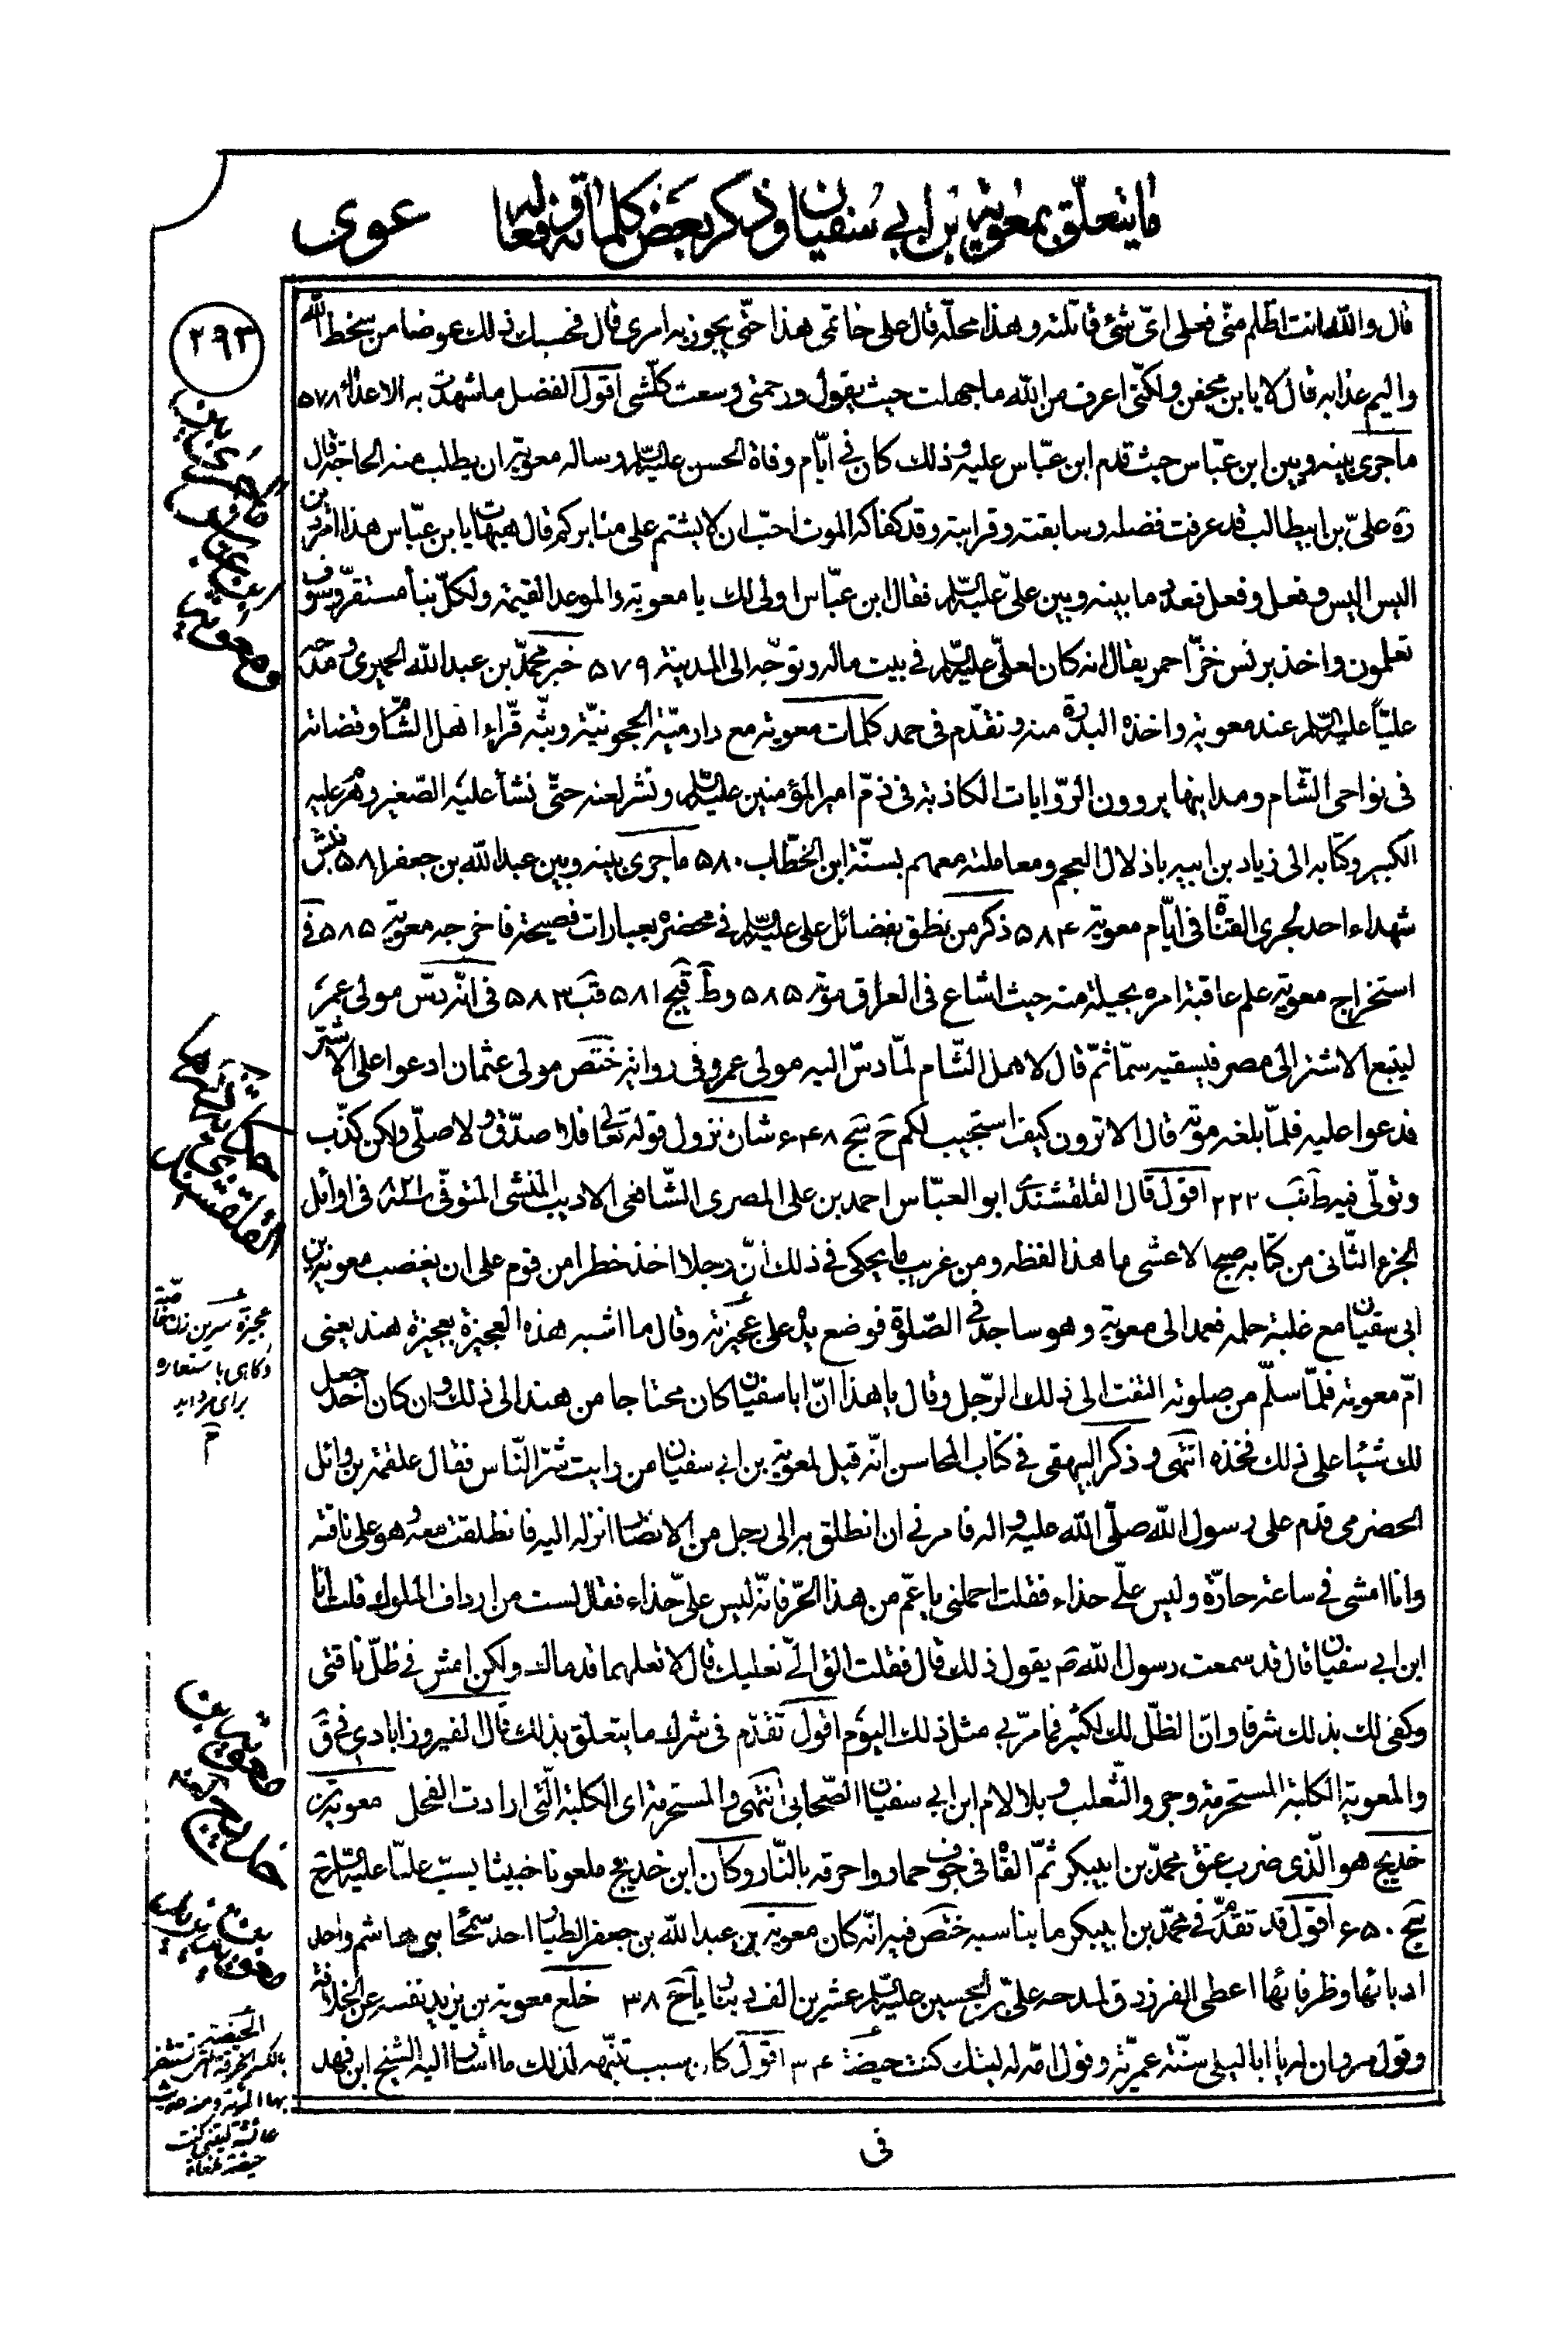 ما يتعلّق بمعوية بن ابي سفيان وذكر بعض كلماته وفعاله
عوى
٢٩٣
قال والله انت اظلم منّى فعلى اىّ شئ قاتلته وهذا محلّه قال على خاتمى هذا حتّى يجوز به امرى قال فحسبك ذلك عوضا من سخط الله
واليم عذابه قال لا يابن محفن ولكنّى اعرف من الله ما جهلت حيث يقول ورحمتى وسعت كلّ شى اقول الفضل ما شهدت به الاعداء ٥٧٨
ما جرى بينه وبين ابن عبّاس حيث قدم ابن عبّاس عليه وذلك كان في ايّام وفاة الحسن عليه السلام وساله معوية ان يطلب منه الحاجة فقال
ره علىّ بن ابيطالب قد عرفت فضله وسابقته وقرابته وقد كفاكه الموت احبّ ان لا يشتم على منابركم قال هيهات يابن عبّاس هذا امر دين
اليس اليس وفعل وفعل فعدّ ما بينه وبين علىّ عليه السلام فقال ابن عبّاس اولى لك يا معوية والموعد القيمة ولكلّ نبأ مستقرّ وسوف
تعلمون واخذ برنس خزّ احمر يقال انه كان لعلىّ عليه السلام في بيت ماله وتوجّه الى المدينة ٥٧٩ خبر محمّد بن عبدالله الحميرى ومدحه
عليّاً عليه السلام عند معوية واخذه البدرة منه وتقدّم فى حمد كلمات معوية مع دارميّة الحجونيّة وبثّه قرّاء اهل الشام وقضاته
فى نواحى الشّام ومداينها يروون الرّوايات الكاذبة فى ذمّ امير المؤمنين عليه السلام ونشر لعنه حتّى نشأ عليه الصّغير وهرم عليه
الكبير وكتابه الى زياد بن ابيه باذلال العجم ومعاملته معهم بسنّة ابن الخطّاب ٥٨٠ ما جرى بينه وبين عبدالله بن جعفر ٥٨١ نبش
شهداء احد لمجرى القناة فى ايّام معوية ٥٨٤ ذكر من نطق بفضائل على عليه السلام فى محضره بعبارات فصيحة فاخرجه معوية ٥٨٥ فى
استخراج معوية علم عاقبة امره بحيلة منه حيث اشاع فى العراق موته ٥٨٥ وط قيج ٥٨١ قب ٥٨٣ فى انّه دسّ مولى عمر
ليتبع الاشتر الى مصر فيسقيه سمّا ثمّ قال لاهل الشّام لمّا دسّ اليه مولى عمرو فى رواية ختص مولى عثمان ادعوا على الاشتر
فدعوا عليه فلمّا بلغه موته قال الا ترون كيف استجيب لكم ح سج ٦٤٨ شان نزول قوله تعالى فلا صدّق ولا صلّى ولكن كذّب
وتولّى فيه ط نب ٢٢٢ اقول قال القلقشندى ابوالعبّاس احمد بن على المصرى الشّافعى الاديب المنشى المتوفّى ٨٢١ فى اوائل
الجزء الثّانى من كتابه صبح الاعشى ما هذا لفظه ومن غريب ما يحكى فى ذلك انّ رجلا اخذ خطرا من قوم على ان يغضب معوية بن
ابى سفيان مع غلبة حلمه فعمد الى معوية وهو ساجد فى الصّلوة فوضع يده على عجيزته وقال ما اشبه هذه العجيزة بعجيزة هند يعنى
امّ معوية فلمّا سلّم من صلوته التفت الى ذلك الرّجل وقال يا هذا انّ ابا سفيان كان محتاجا من هند الى ذلك وان كان احد جعل
لك شيئا على ذلك فخذه انتهى وذكر البيهقى فى كتاب المحاسن انّه قيل لمعوية بن ابى سفيان من رايت شرّ النّاس فقال علقمة بن وائل
الحضرمى قدم على رسول الله صلّى الله عليه واله فامرنى ان انطلق به الى رجل من الانصار انزله اليه فانطلقت معه وهو على ناقته
وانا امشى فى ساعة حارّة وليس علىّ حذاء فقلت احملنى يا عمّ من هذا الحرّ فانّه ليس علىّ حذاء فقال لست من ارداف الملوك قلت انا
ابن ابى سفيان قال قد سمعت رسول الله ص يقول ذلك قال فقلت الق الىّ نعليك قال لا تعلهما قدماك ولكن امش فى ظلّ ناقتى
وكفى لك بذلك شرفا وانّ الظلّ لك لكثير فما مرّ بى مثل ذلك اليوم اقول تقدّم فى شرك ما يتعلّق بذلك قال الفيروزابادى فى ق
والمعوية الكلبة المستحرمة وجرو الثّعلب وبلا لام ابن ابى سفيان الصّحابى انتهى والمستحرمة اى الكلبة الّتى ارادت الفحل معوية بن
خديج هو الّذى ضرب عنق محمّد بن ابيبكر ثمّ القاه فى جوف حمار واحرقه بالنّار وكان ابن خديج ملعونا خبيثا يسبّ عليّا عليه السلام ح
سج ٦٥٠ اقول قد تقدّم فى محمّد بن ابيبكر ما يناسبه ختص فيه انّه كان معوية بن عبدالله بن جعفر الطيار احد سمحاء بنى هاشم واحد
ادبائها وظرفائها اعطى الفرزدق لمدحه علىّ بن الحسين عليه السلام عشرين الف دينار يا ح ٣٨ خلع معوية بن يزيد نفسه عن الخلافة
وقول مروان له يا ابا ليلى سنّة عمريّة وقول امّه له ليتك كنت حيضة ٣٤ اقول كان سبب تنبّهه لذلك ما اشار اليه الشيخ ابن فهد
فى
ما جرى بين
ابن عباس
ومعوية
القلقشندى
عجيزة سرين زن خاصّة
وگاهى باستعاره
براى مرد ايد
م
معوية بن
خديج
معوية بن يزيد
الحيضة
بالكسر الخرقة التى تستثفر
بها المرئة ومنه حديث
عائشة ليتنى كنت
حيضة ملقاة